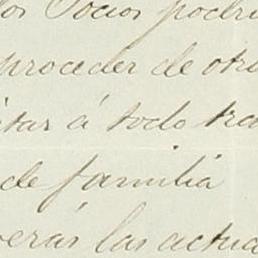 los Socios podrá
proceder de otro
itar á todo tra
de familia
verás las actua